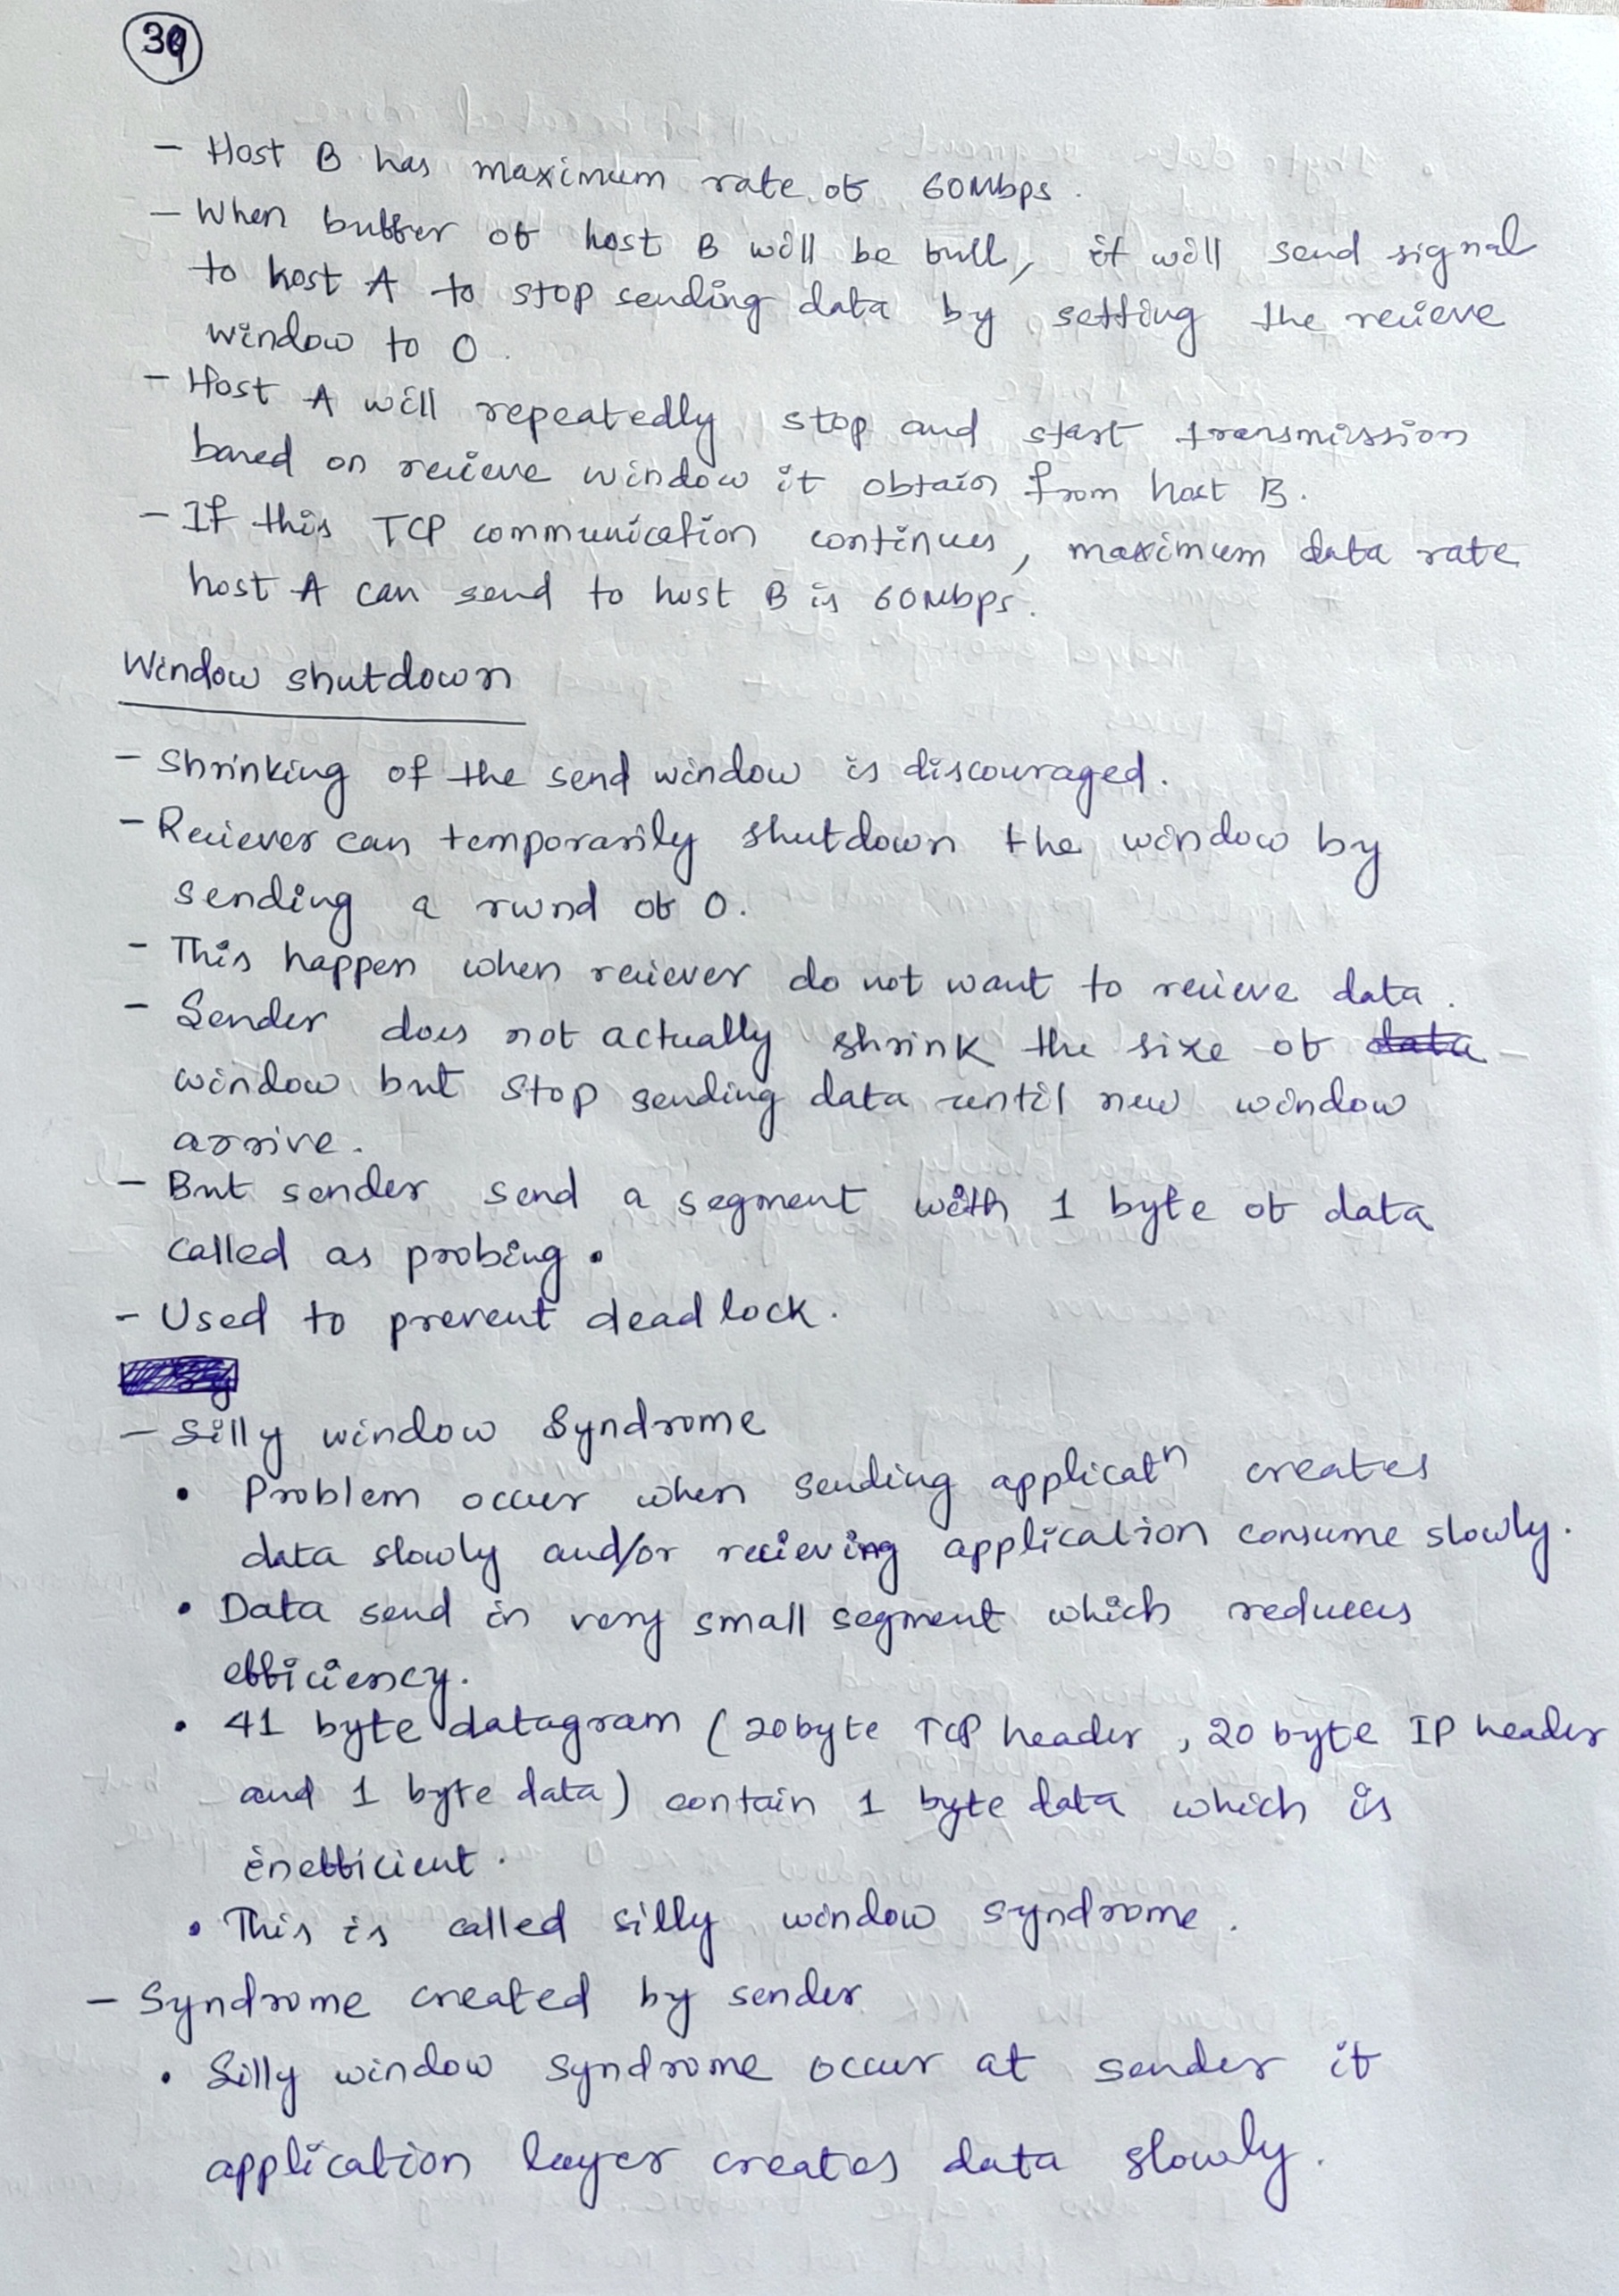 39
- Host B has maximum rate of 60Mbps.
- When buffer of host B will be full, it will send signal
to host A to stop sending data by setting the recieve
window to 0.
- Host A will repeatedly stop and start transmission
based on recieve window it obtain from host B.
- If this TCP communication continues, maximum data rate
host A can send to host B is 60Mbps.
Window shutdown
- Shrinking of the send window is discouraged.
- Reciever can temporarily shutdown the window by
sending a rwnd of 0.
- This happen when reciever do not want to recieve data.
- Sender does not actually shrink the size of data
window but stop sending data until new window
arrive.
- But sender send a segment with 1 byte of data
called as probing.
- Used to prevent deadlock.
- Silly window Syndrome
• Problem occur when sending applicatn creates
data slowly and/or recieving application consume slowly.
• Data send in very small segment which reduces
efficiency.
• 41 byte datagram (20byte TCP header, 20 byte IP header
and 1 byte data) contain 1 byte data which is
inefficient.
• This is called silly window syndrome.
- Syndrome created by sender
• Silly window syndrome occur at sender if
application layer creates data slowly.